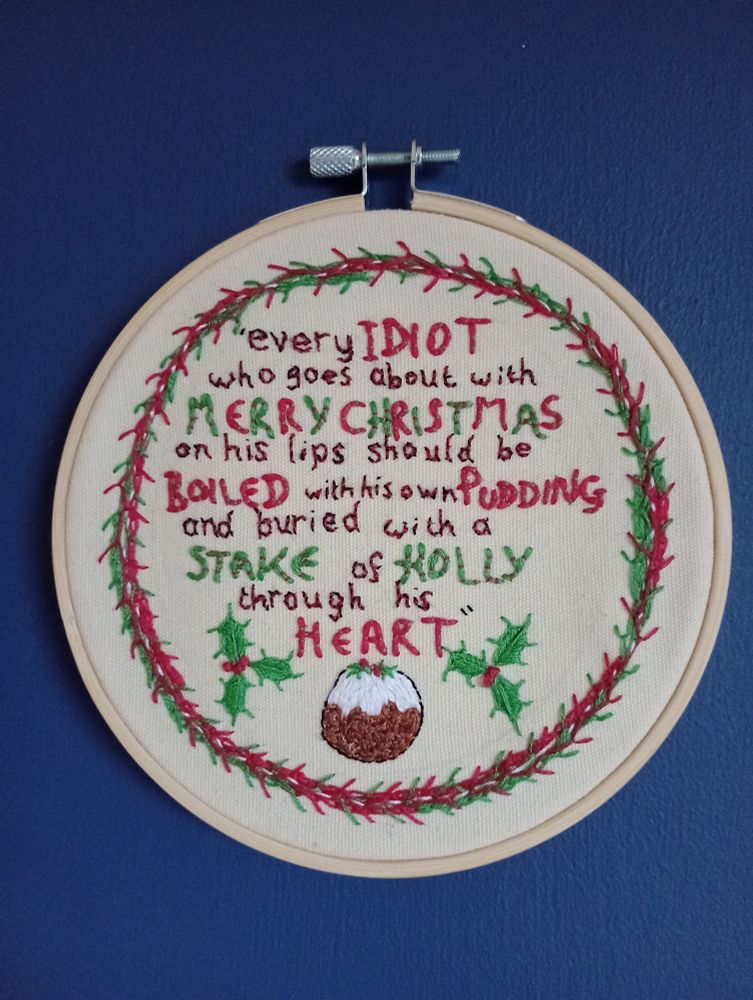 "every IDIOT
who goes about with
MERRY CHRISTMAS
on his lips should be
BOILED with his own PUDDING
and buried with a
STAKE of HOLLY
through his
HEART"